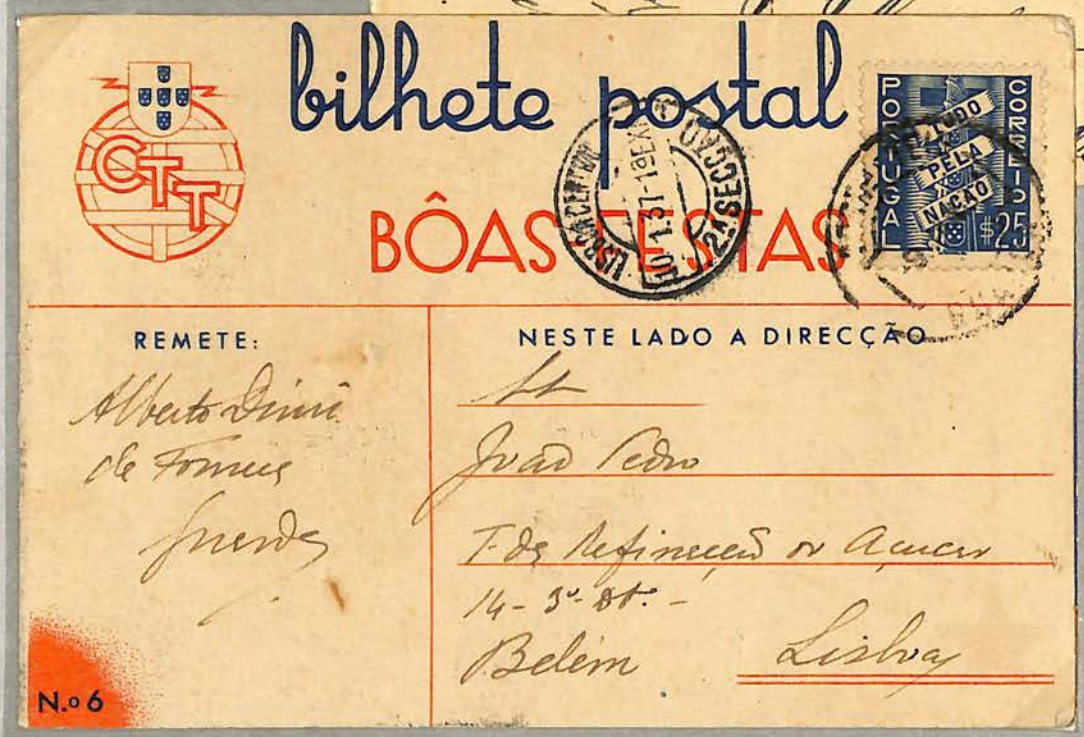 bilhete postal
CTT
BÔAS FESTAS
PORTUGAL
CORREIO
TUDO
PELA
NAÇÃO
$25
LISBOA CENTRAL
1.37-19
2A SECCAO
REMETE:
Alberto Diniz
da Fonseca
Guarda
NESTE LADO A DIRECÇÃO
João Pedro
T. da Refinação de Açucar
14-3º-Dt.-
Belém Lisboa
N.o 6